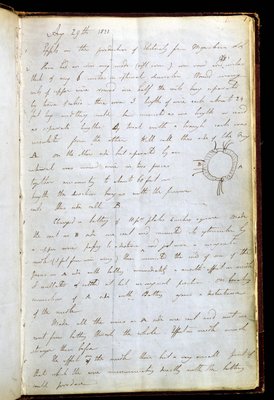 Aug 29th 1831
Expts on the production of Electricity from Magnetism, etc etc
Have had an iron ring made (soft iron), iron round and
thick and ring 6 inches in external diameter. Wound many
coils of copper wire round one half the coils being separated
by twine & calico - there were 3 lengths of wire each about 24
feet long and they could be connected as one length or used
as separate lengths. By trial with a trough each was
insulated from the other. Will call this side of the ring
A. on the other side but separated by an
interval was wound wire in two pieces
together amounting to about 60 feet in
length the direction being as with the former
coils this side call B.
Charged a battery of 10 pr plates 4 inches square. Made
the coil on B side one coil and connected its extremities by
a copper wire passing to a distance and just over a magnetic
needle (3 feet from iron ring) then connected the ends of one of the
pieces on A side with battery immediately a sensible effect on needle
It oscillated & settled at last in original position. On breaking
connection of A side with Battery again a disturbance
of the needle
Made all the wires on A side one coil and sent current
from battery through the whole. Effect on needle much
stronger than before.
The effect on the needle then but a very small part of
that which the wire communicating directly with the battery
could produce